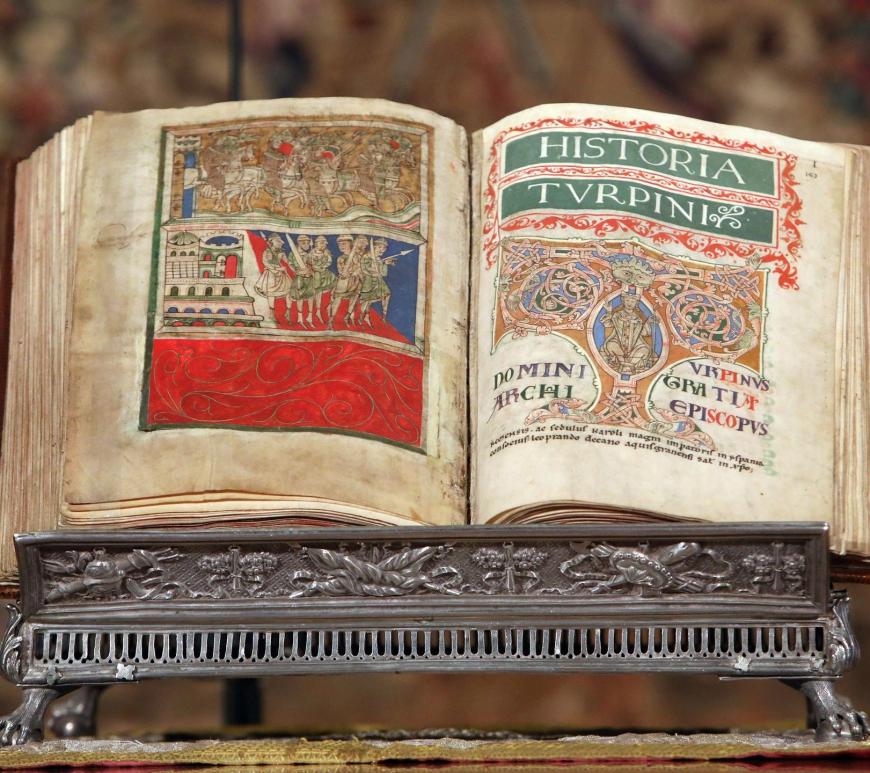 HISTORIA
TVRPINI
DOMINI VRPINVS
ARCHI GRATIA
EPISCOPVS
ac sedulus karoli magni in yspania
consocius leoprando decano aquisgranensi salt in xpo;